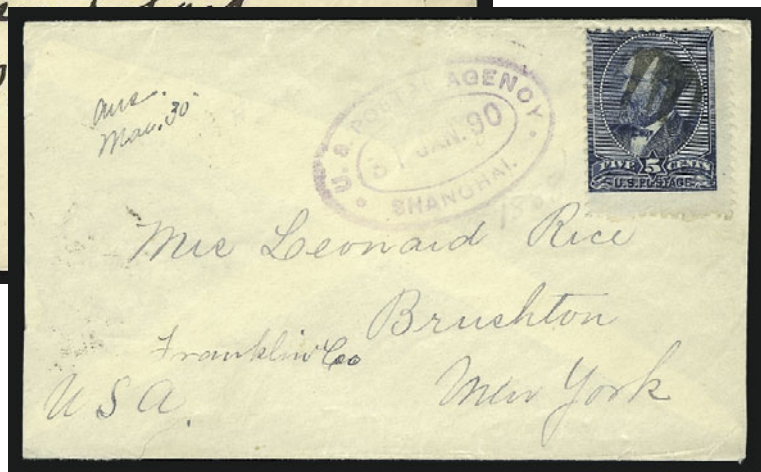 ans.
Mar. 30
U. S. POSTAL AGENCY
JAN. 90
SHANGHAI.
FIVE 5 CENTS
U.S. POSTAGE
Mrs Leonard Rice
Brushton
Franklin Co
New York
USA.